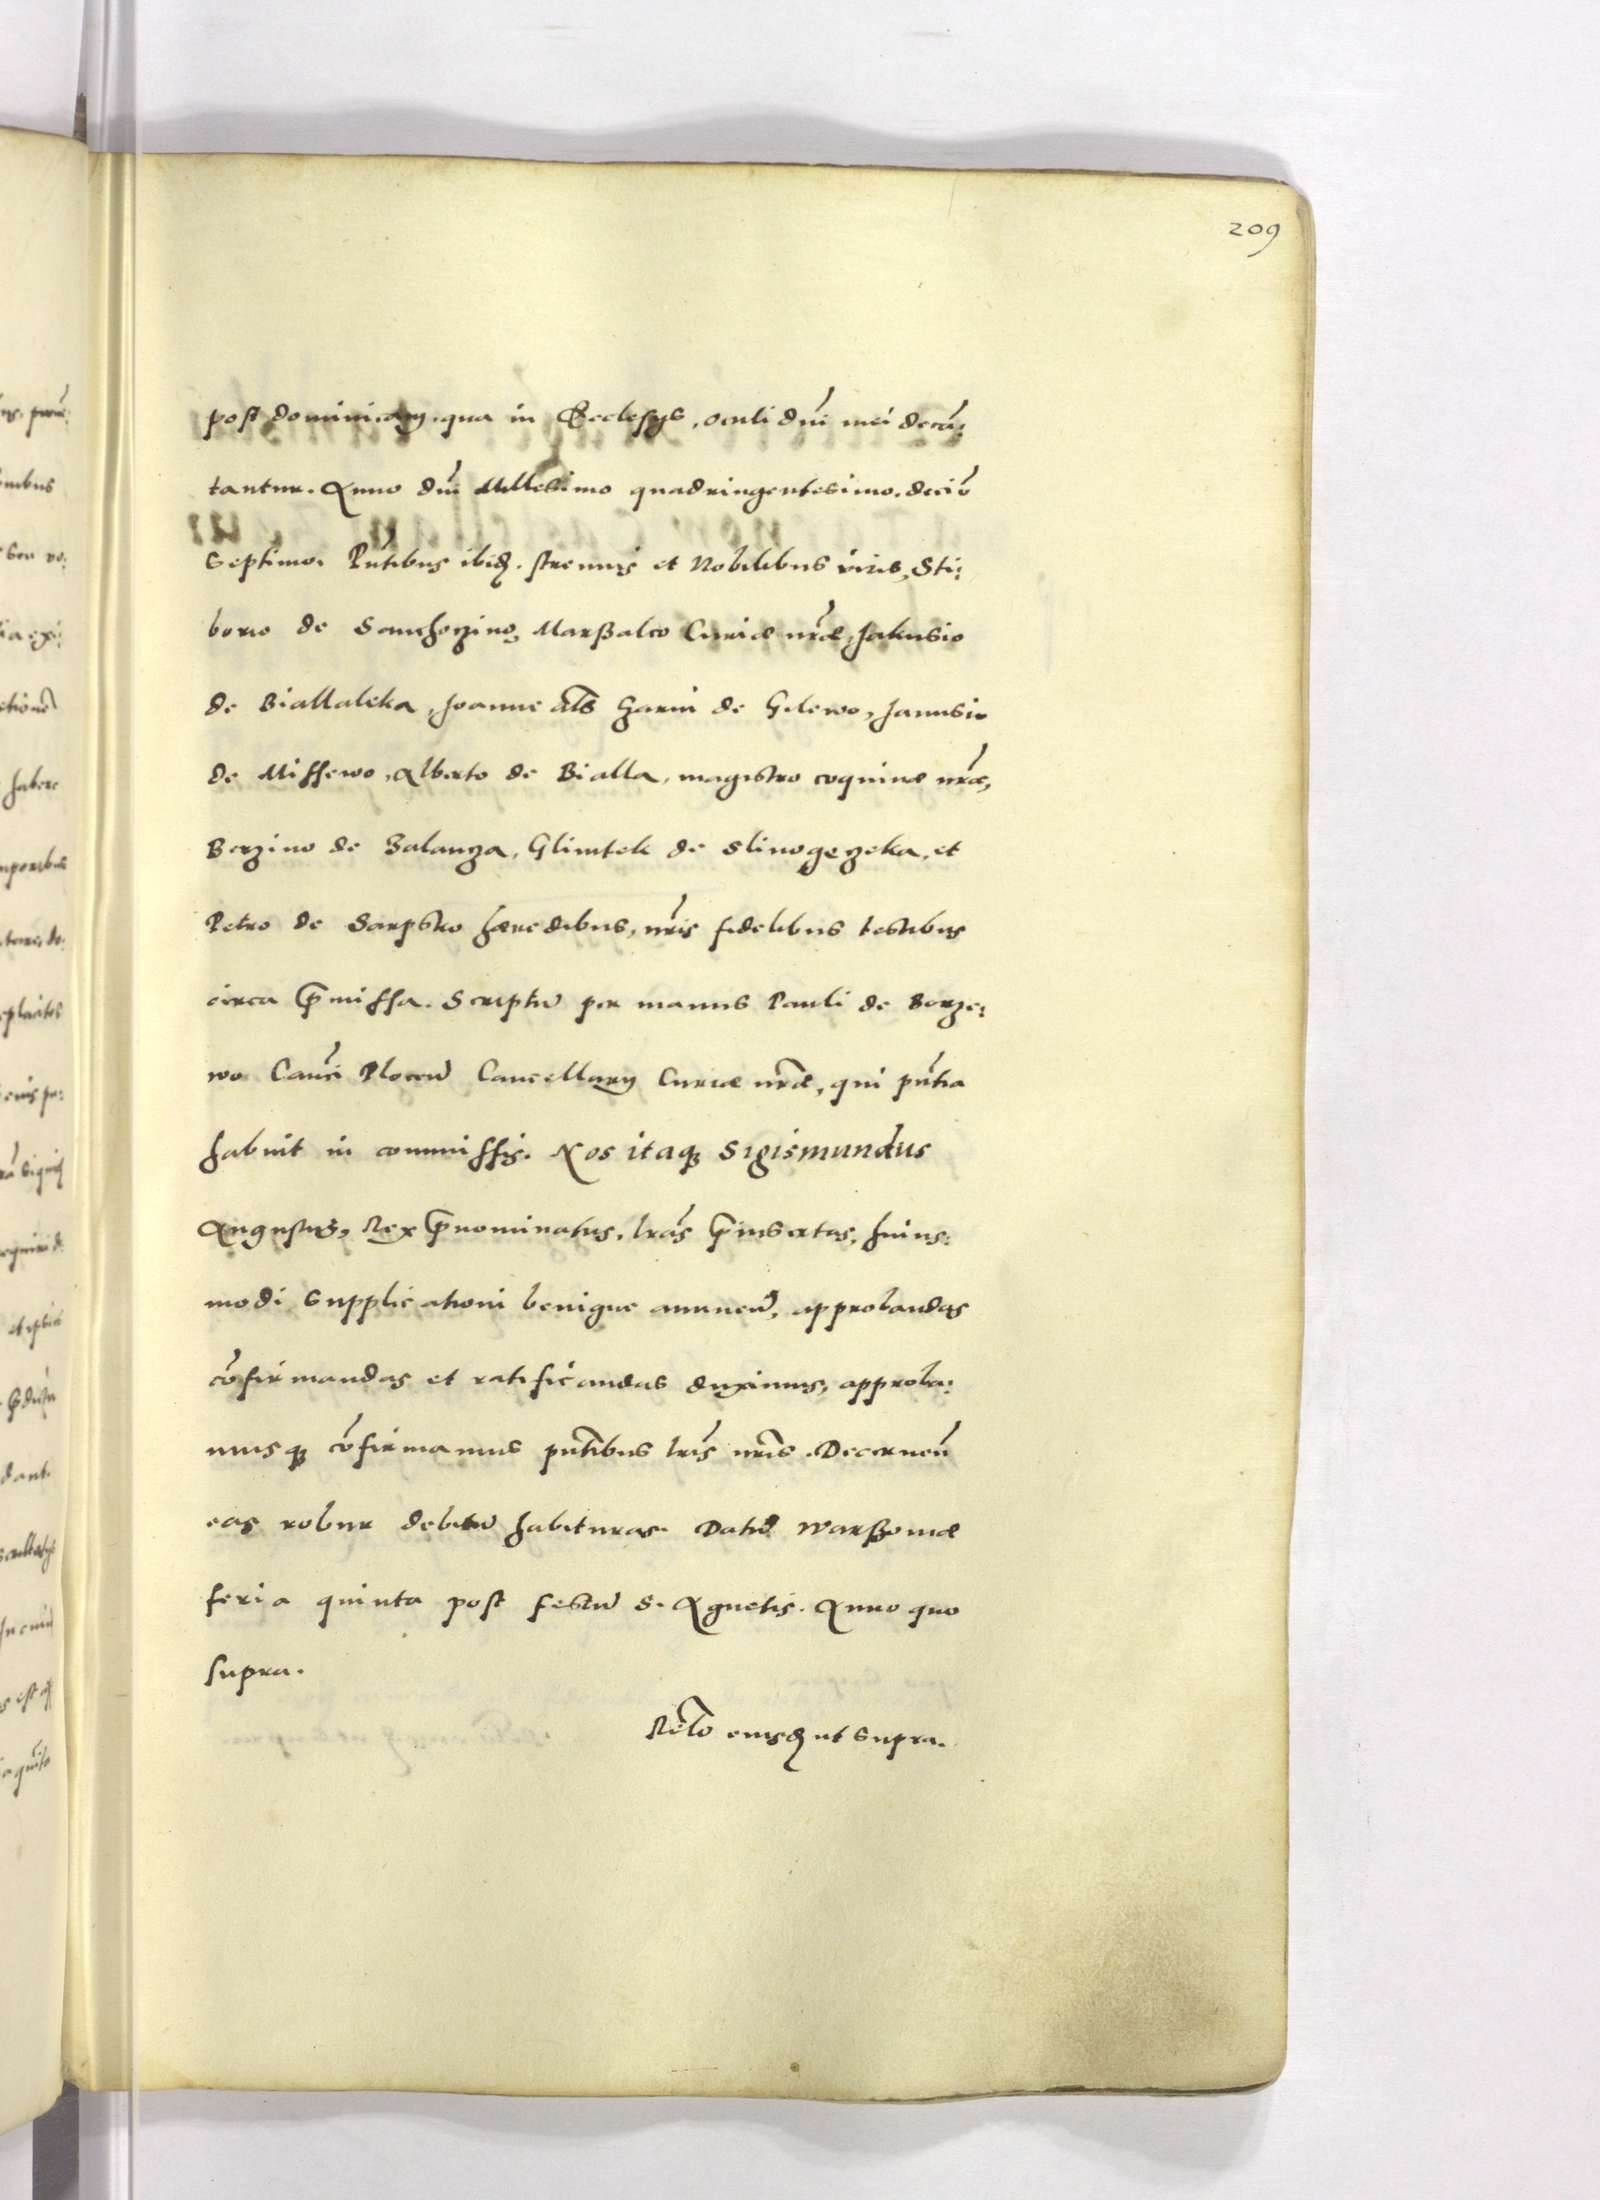 209
post dominicam. qua in Ecclesijs, oculi dni mei decā:
tantur. Anno dni Millesimo quadringentesimo. decīo
septimo. Pntibus ibid. strenuis et Nobilibus viris, Sti:
borio de Sanchozino, Marßalco Curiæ nræ, Jakusio
de Biallaleka, Joanne als Garni de Gilewo, Janusio
de Missewo, Alberto de Bialla, magistro coquinæ nræ,
Berzino de Zalanza, Glimtek de Slinogezeka, et
Petro de Sarpsko hæredibus, nris fidelibus testibus
circa pmissa. Scriptū per manus Pauli de Borze:
wo Canci Plocen Cancellarij Curiæ nræ, qui pntia
habuit in commissis. Nos itaq Sigismundus
Augustus, Rex pnominatus, lras pinsertas, huius:
modi supplicationi benigne annuen, approbandas
cōfirmandas et ratificandas duximus, approba:
musq cōfirmamus pntibus lris nris. Decernen
eas robur debitū habituras. Datū Warßouiæ
feria quinta post festū S. Agnetis. Anno quo
supra.
Relo eiusd ut supra.